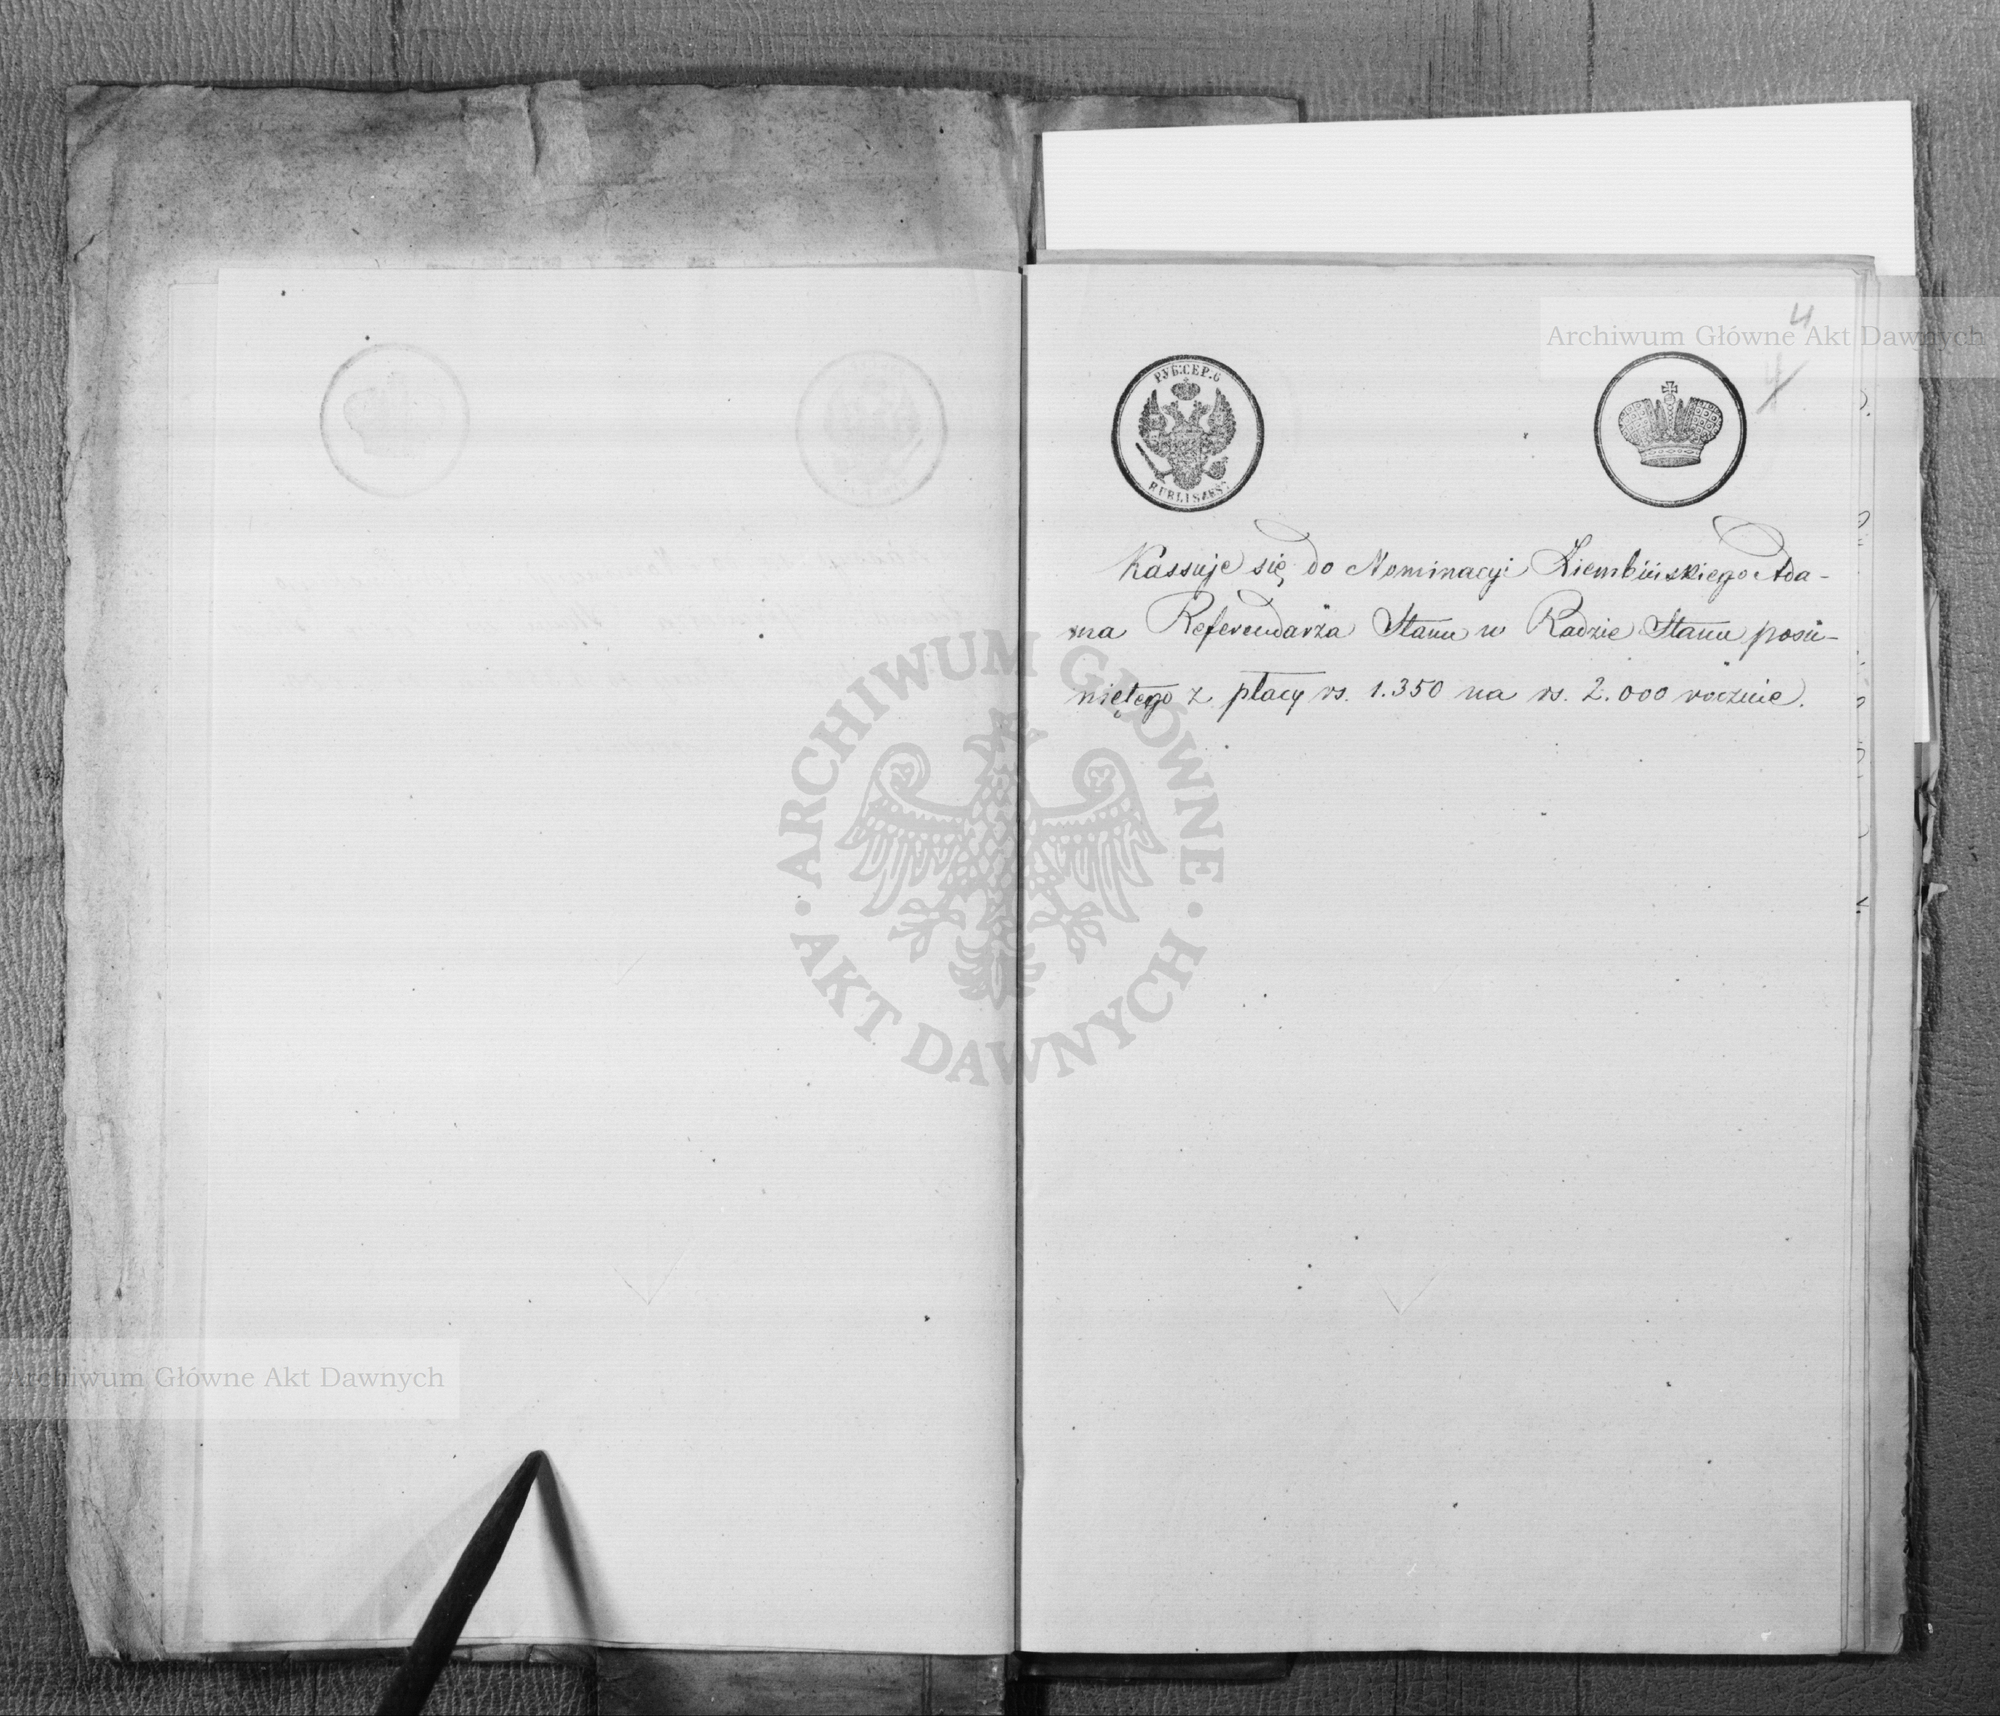 Archiwum Główne Akt Dawnych
4
4
РУБ:СЕР.6
RUBLI SREB:
Kassuje się do Nominacyi Ziembińskiego Ada-
ma Referendarza Stanu w Radzie Stanu posu-
niętego z płacy rs. 1.350 na rs. 2.000 rocznie.
ARCHIWUM GŁÓWNE
AKT DAWNYCH
Archiwum Główne Akt Dawnych